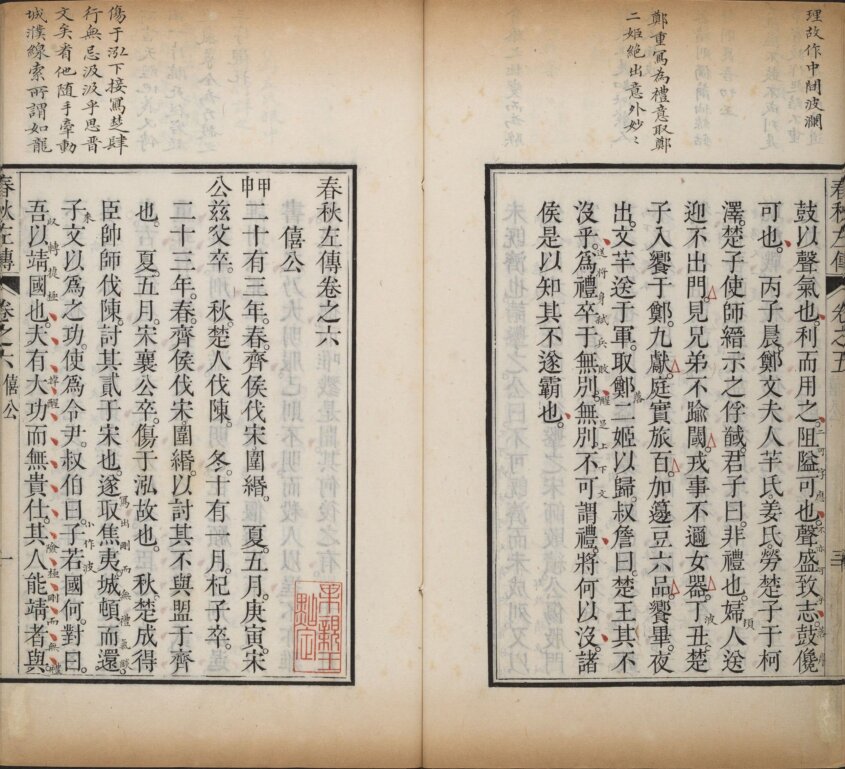 理故作中間波瀾
鄭重寫為禮意取鄭
二姬絕出意外妙〻
春秋左傳 卷之五 三
鼓以聲氣也。利而用之。阻隘可也。聲盛致志。鼓儳
可也。 丙子晨。鄭文夫人芊氏。姜氏勞楚子于柯
澤。楚子使師縉示之俘馘。君子曰。非禮也。婦人送
迎不出門。見兄弟不踰閾。戎事不邇女器。丁丑。楚
子入饗于鄭。九獻。庭實旅百。加籩豆六品。饗畢。夜
出。文芊送于軍。取鄭二姬以歸。叔詹曰。楚王其不
沒乎。爲禮卒于無別。無別不可謂禮。將何以沒。諸
侯是以知其不遂霸也。
頓
波
落
醒足上下文
傷于泓下接寫楚肆
行無忌汲汲乎思晋
文矣看他隨手牽動
城濮線索所謂如龍
春秋左傳卷之六
僖公
甲申 二十有三年。春。齊侯伐宋。圍緡。 夏。五月。庚寅。宋
公兹父卒。 秋。楚人伐陳。 冬。十有一月。杞子卒。
二十三年。春。齊侯伐宋。圍緡。以討其不與盟于齊
也。 夏。五月。宋襄公卒。傷于泓故也。 秋。楚成得
臣帥師伐陳。討其貳于宋也。遂取焦夷。城頓而還。
子文以爲之功。使爲令尹。叔伯曰。子若國何。對曰。
吾以靖國也。夫有大功而無貴仕。其人能靖者與
小作波
春秋左傳 卷之六 僖公 一
果親王
點定